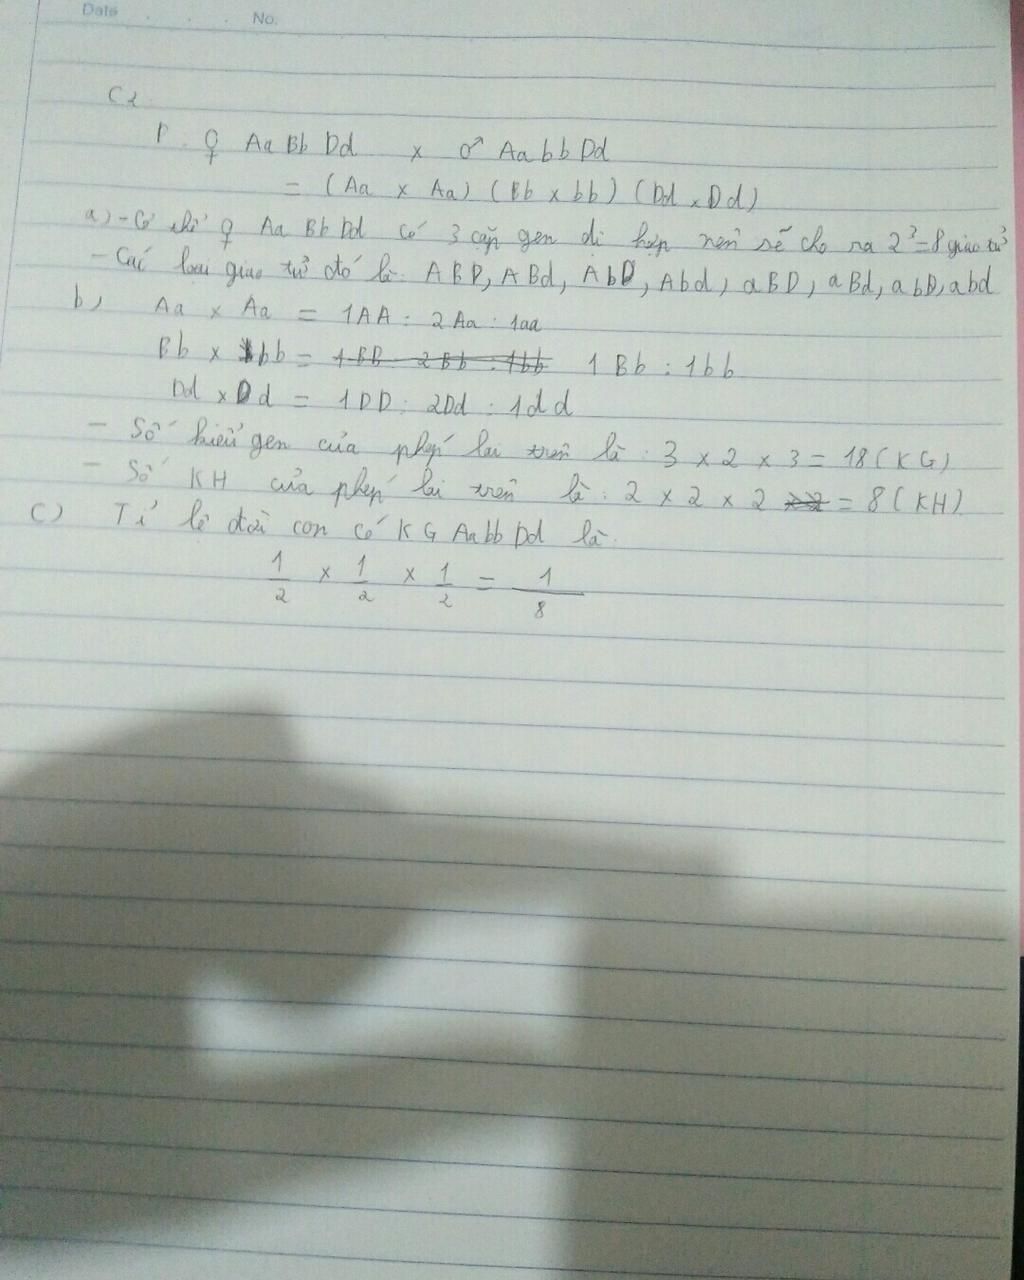 Date . . . No.
C2
P. ♀ Aa Bb Dd x ♂ Aa bb Dd
= (Aa x Aa) (Bb x bb) (Dd x Dd)
a) - Cơ thể ♀ Aa Bb Dd có 3 cặp gen dị hợp nên sẽ cho ra 2³=8 giao tử
- Các loại giao tử đó là: ABD, ABd, AbD, Abd, aBD, aBd, abD, abd
b) Aa x Aa = 1AA : 2Aa : 1aa
Bb x bb = 1BB 2Bb : 1bb 1Bb : 1bb
Dd x Dd = 1DD : 2Dd : 1dd
- Số kiểu gen của phép lai trên là : 3 x 2 x 3 = 18 (KG)
- Số KH của phép lai trên là : 2 x 2 x 2 = 8 (KH)
C) Tỉ lệ đời con có KG Aabb Dd là:
1/2 x 1/2 x 1/2 = 1/8